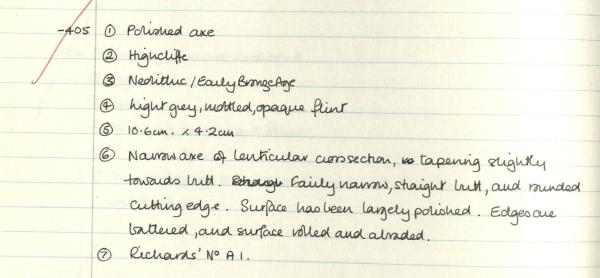 -405 ① Polished axe
② Highcliffe
③ Neolithic/Early Bronze Age
④ Light grey, mottled, opaque flint
⑤ 10.6cm. x 4.2cm
⑥ Narrow axe of lenticular cross section, tapering slightly
towards butt. Fairly narrow, straight butt, and rounded
cutting edge. Surface has been largely polished. Edges are
battered, and surface rolled and abraded.
⑦ Richards' Nº A1.